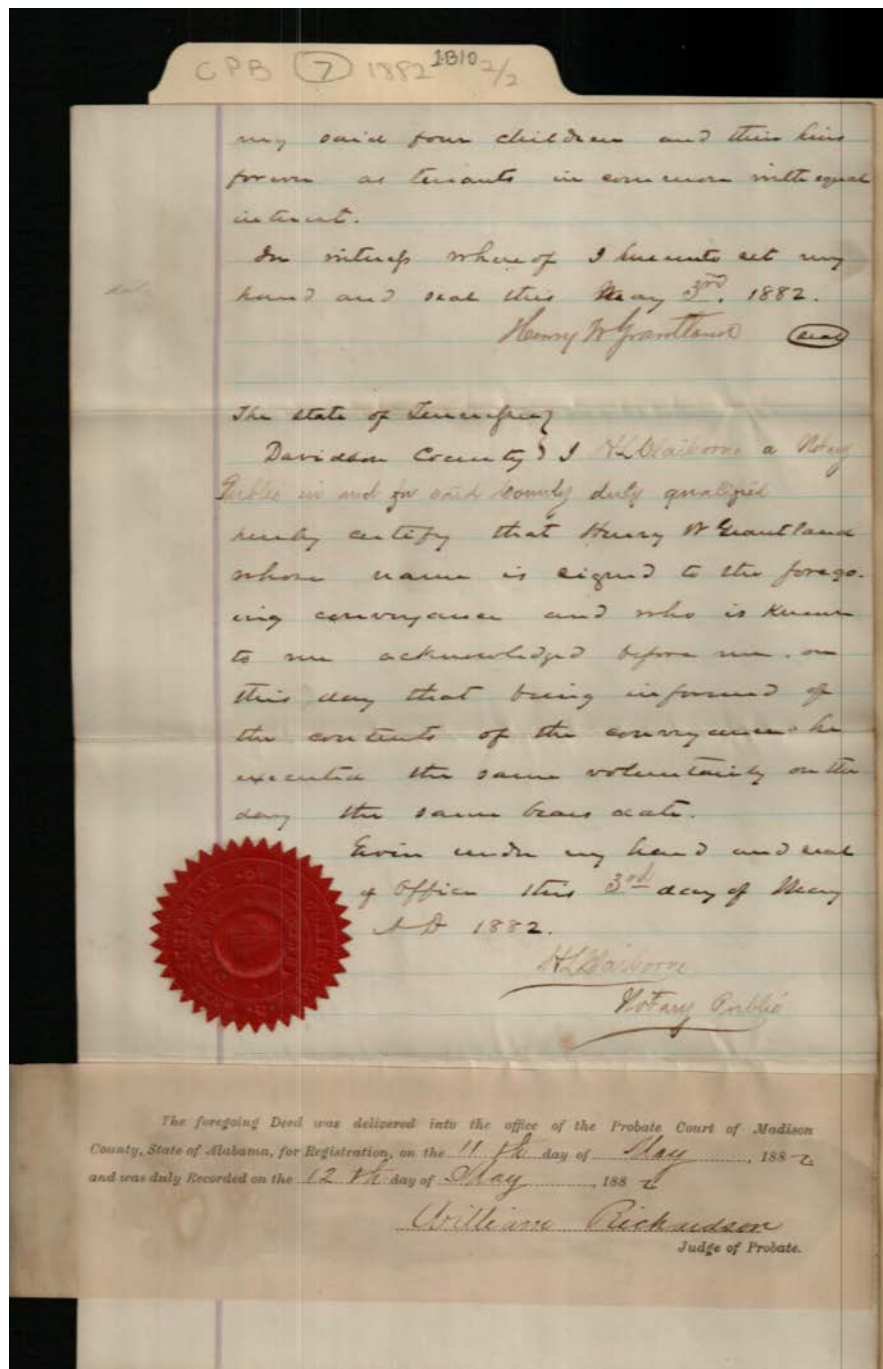 CPB 7 1882 1B10 2/2
my said four children and their heirs
forever as tenants in common with equal
interest.
In witness whereof I hereunto set my
hand and seal this May 3rd. 1882.
date
Henry W Grantland seal
The state of Tennessee
Davidson County I H L Claiborne a Notary
Public in and for said County duly qualified
hereby certify that Henry W Grantland
whose name is signed to the forego-
ing conveyance and who is known
to me acknowledged before me. on
this day that being informed of
the contents of the conveyance he
executed the same voluntarily on the
day the same bears date.
Given under my hand and seal
of Office this 3rd day of May
A D 1882.
H L Claiborne
Notary Public
The foregoing Deed was delivered into the office of the Probate Court of Madison
County, State of Alabama, for Registration, on the 11th day of May, 1882
and was duly Recorded on the 12th day of May, 1882
William Richardson
Judge of Probate.